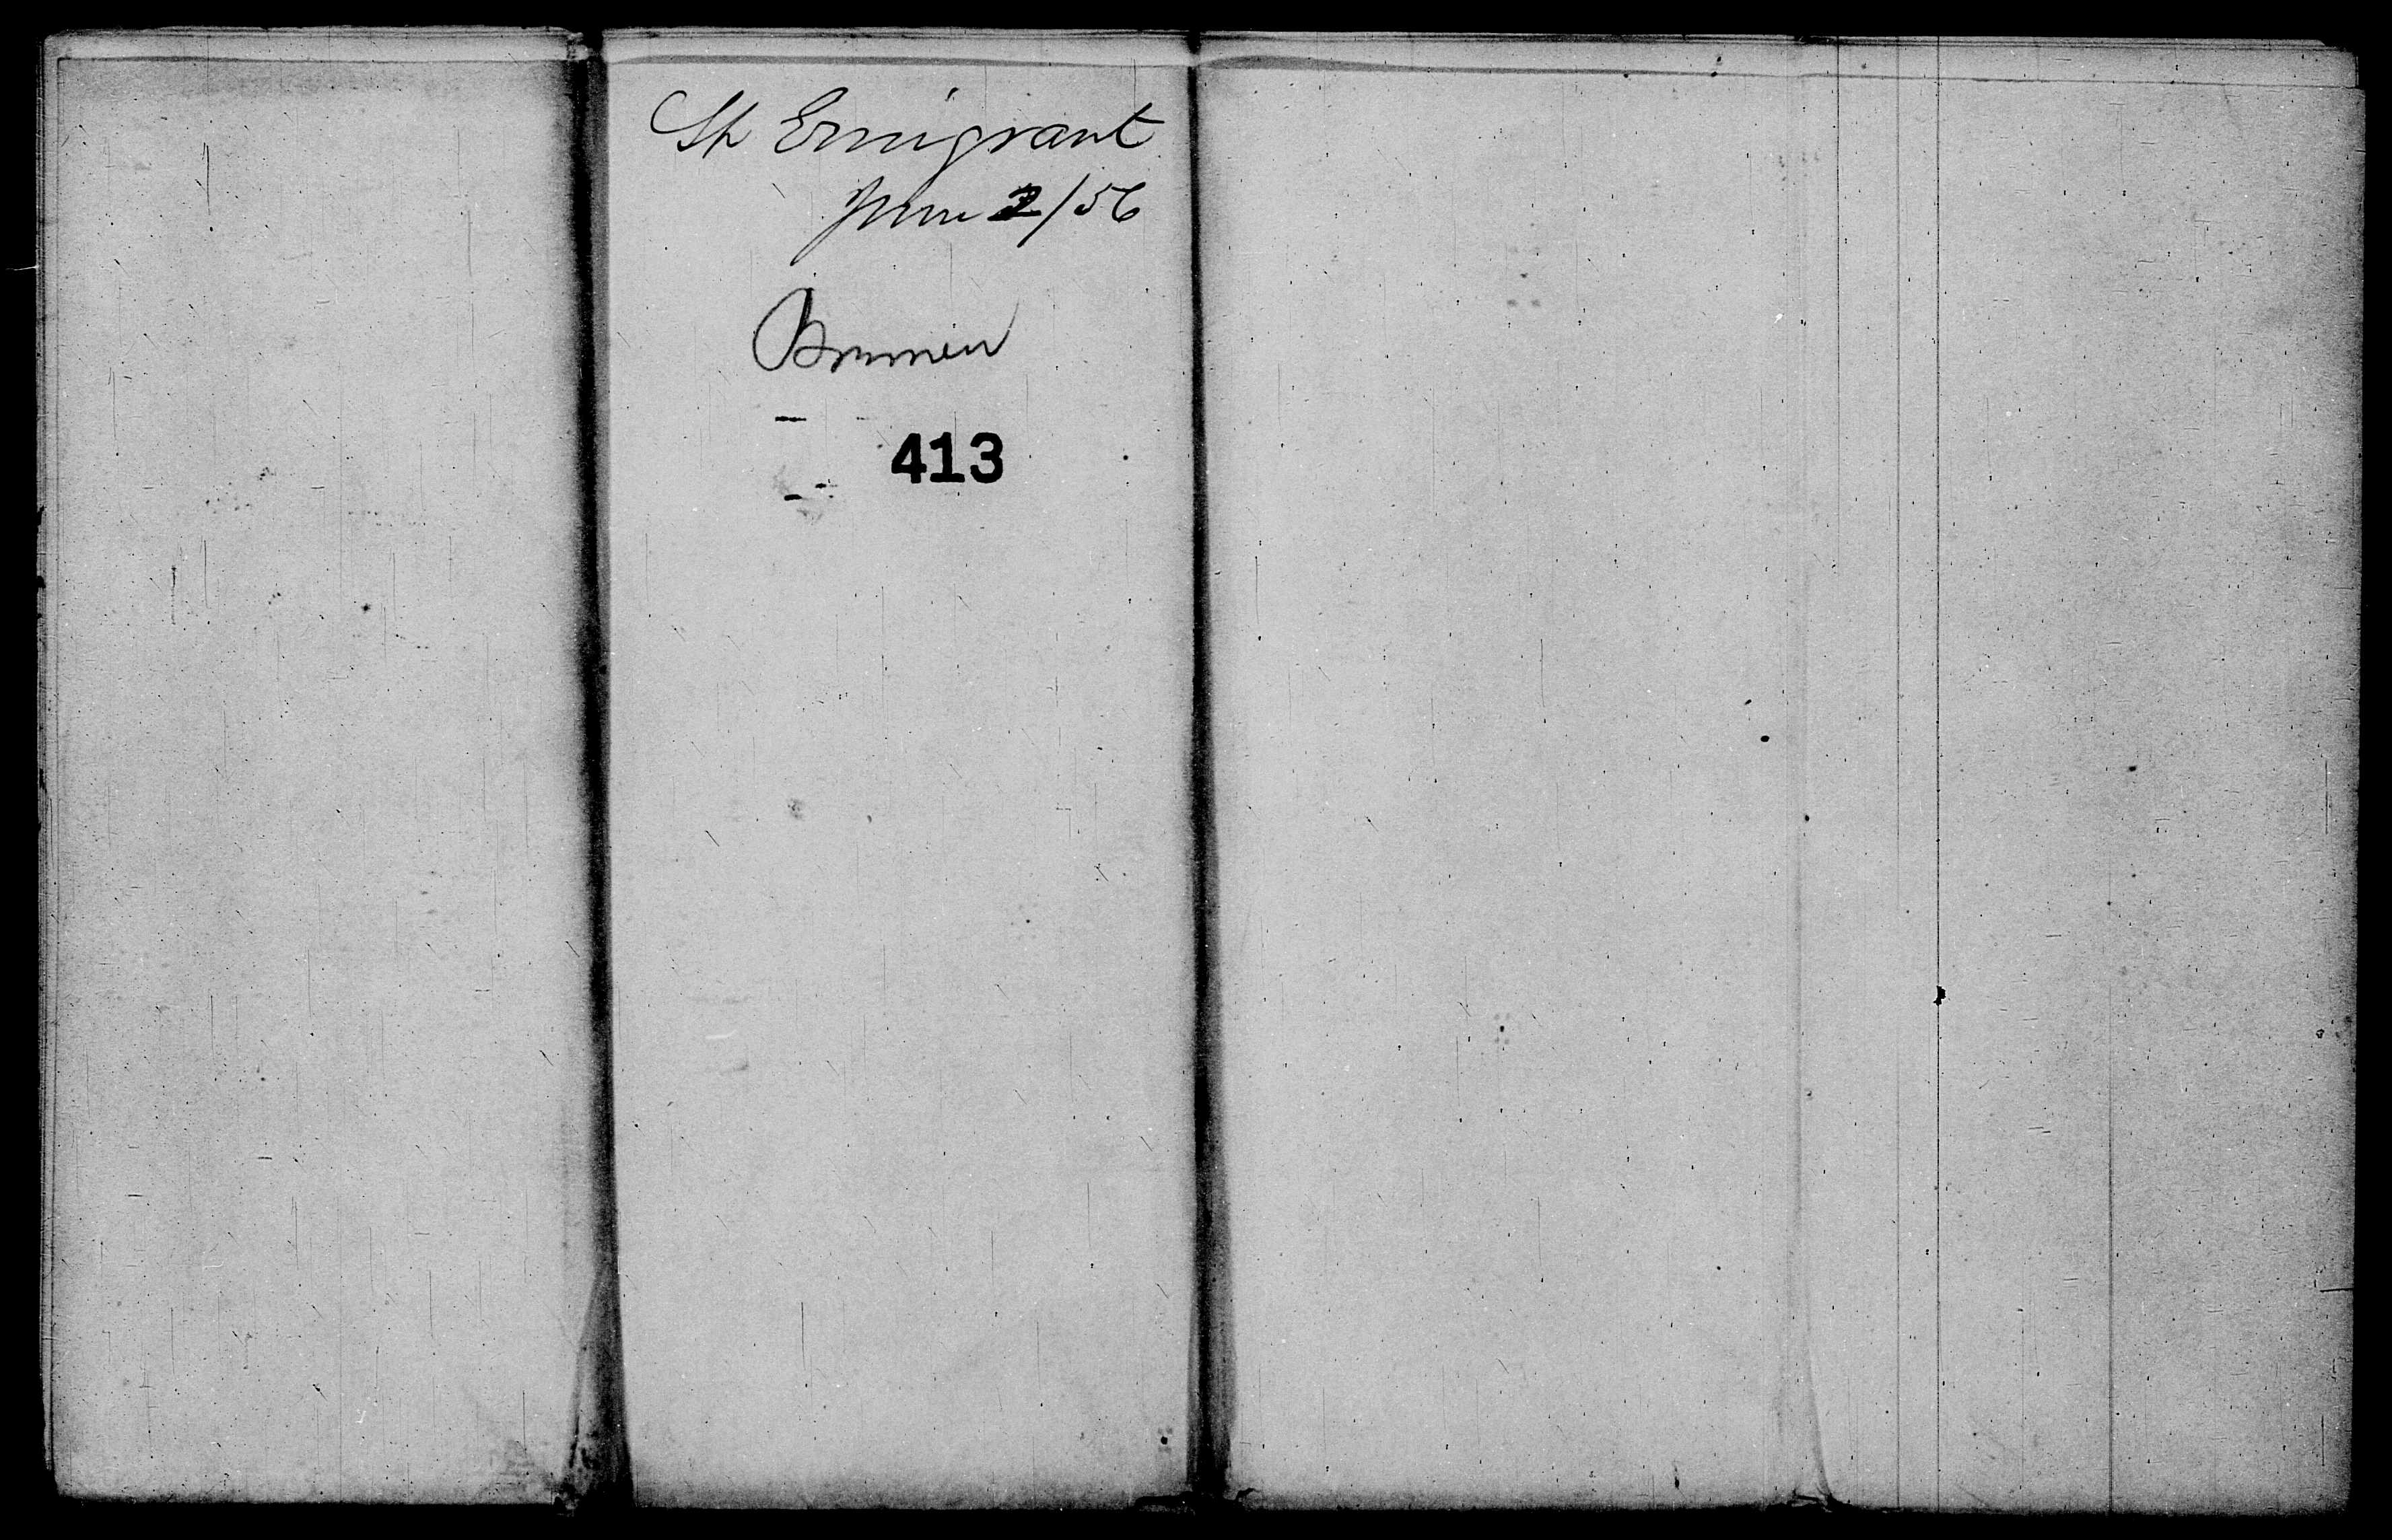 Sh Emigrant
June 2/56
Bremen
413